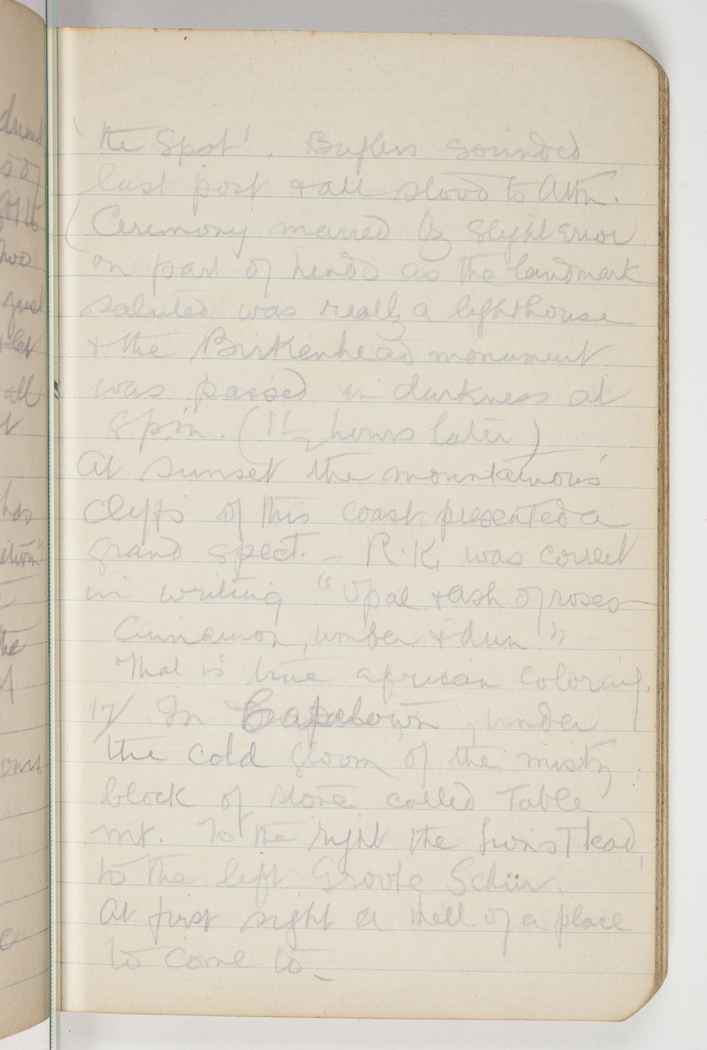 'the Spot'. Buglers sounded
last post & all stood to Attn.
(Ceremony marred by slight error
on part of heads as the landmark
saluted was really a lighthouse
& the Birkenhead monument
was passed in darkness at
8 pm. (1½ hours later)
At sunset the mountainous
cliffs of this coast presented a
grand spect. – R.K. was correct
in writing "Opal & ash of roses –
Cinnamon, umber & dun"
That is true african coloring.
17/ In Capetown, under
the cold gloom of the misty
block of stone called Table
mt. To the right the Lion's Head,
to the left Groote Schür.
At first sight a Hell of a place
to come to –